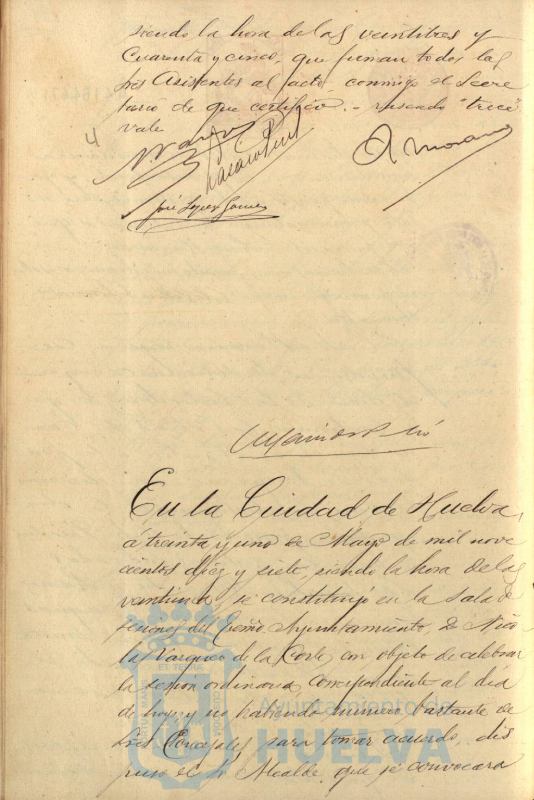 siendo la hora de las veintitres y
Cuarenta y cinco, que firman todos los
Sres Asistentes al acto, conmigo el Secre
tario de que certifico. - raspado "trece"
vale
4
A Moreno
José López Gómez
En la Ciudad de Huelva,
á treinta y uno de Mayo de mil nove
cientos diez y siete, siendo la hora de las
veintiuna se constituyó en la Sala de
sesiones del Excmo Ayuntamiento, D Nico
lás Vázquez de la Corte, con objeto de celebrar
la sesion ordinaria, correspondiente al día
de hoy, y no habiendo número bastante de
Sres Concejales para tomar acuerdo, dis
puso el Sr Alcalde, que se convocara
Ayuntamiento de
HUELVA